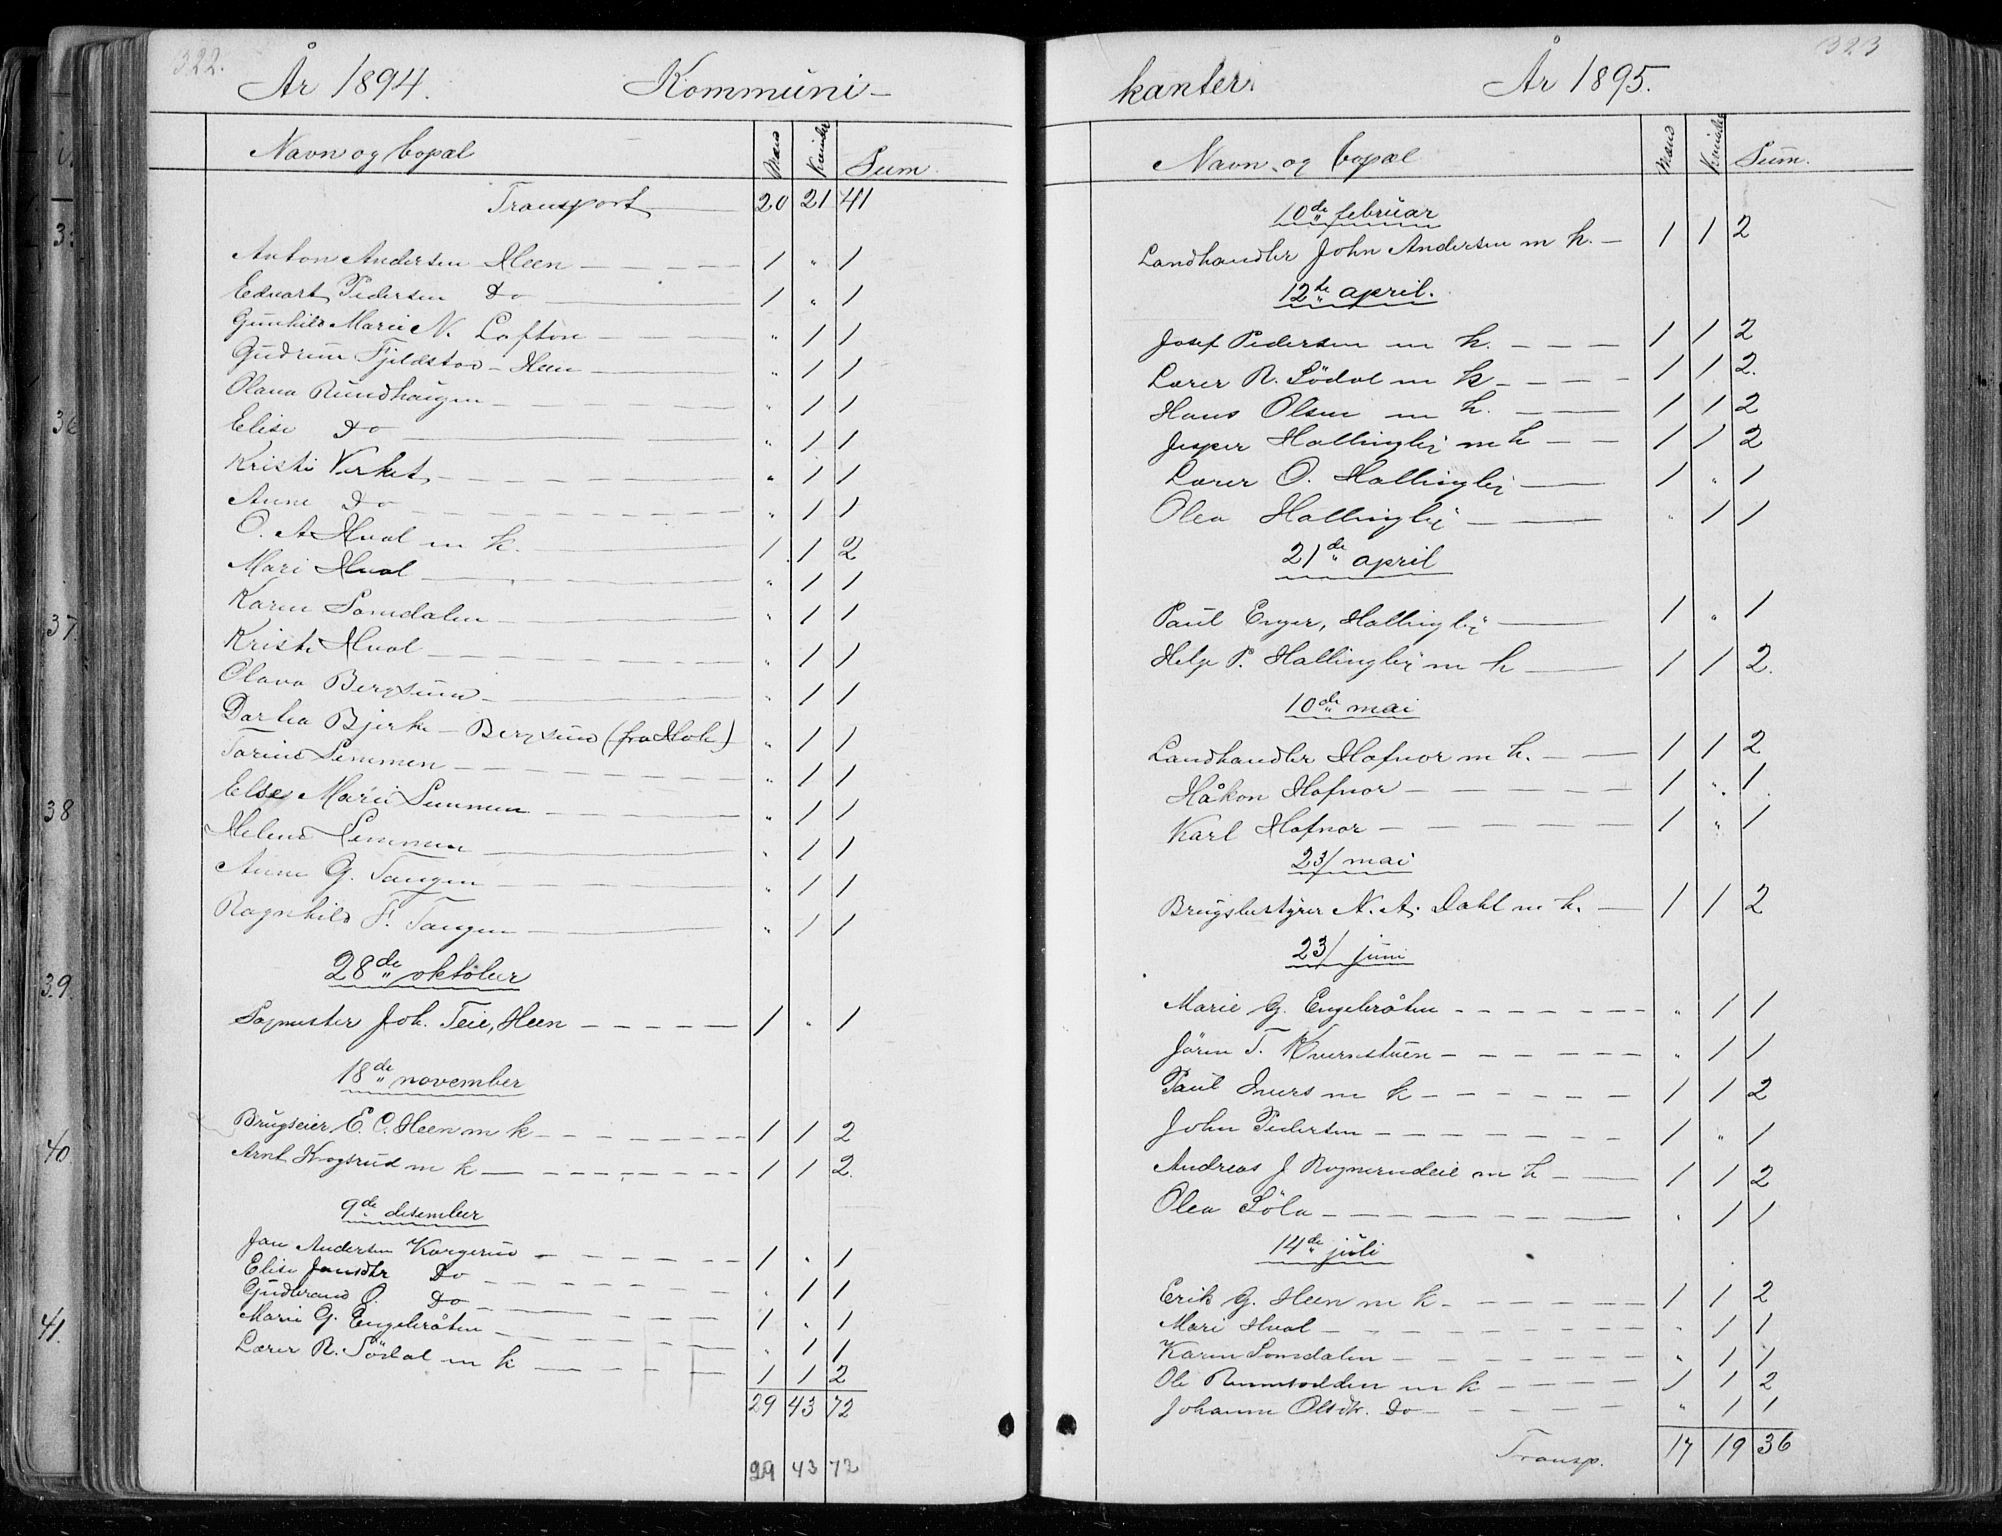 322.
År 1894. Kommuni-
Navn og bopæl Mænd Kvinder Sum
Transport 20 21 41
Anton Andersen Heen 1 " 1
Edvart Pedersen Do 1 " 1
Gunhild Marie N. Loften " 1 1
Gudrun Fjeldstad - Heen " 1 1
Olava Rundhaugen " 1 1
Elise Do " 1 1
Kristi Verket " 1 1
Anne Do " 1 1
O. A. Hval m k. 1 1 2
Mari Hval " 1 1
Karen Somdalen " 1 1
Kristi Hval " 1 1
Olava Bergsund " 1 1
Dorthea Bjerke - Bergsund (fra Hole) " 1 1
Torine Semmen " 1 1
Else Marie Semmen " 1 1
Helene Semmen " 1 1
Anne G. Tangen " 1 1
Ragnhild F. Tangen " 1 1
28de oktober
Sagmester Joh. Teie, Heen 1 " 1
18de november
Brugseier E. C. Heen m k 1 1 2
Arnt Krogsrud m k 1 1 2
9de desember
Jan Andersen Korgerud 1 " 1
Elise Jansdtr Do " 1 1
Gudbrand O. Do 1 " 1
Marie G. Engebråten " 1 1
Lærer R. Södal m k 1 1 2
29 43 72
29 43 72
323
kanter. År 1895.
Navn og bopæl Mænd Kvinder Sum.
10de februar
Landhandler John Andersen m k. 1 1 2
12te april.
Josef Pedersen m k. 1 1 2
Lærer R. Södal m k 1 1 2.
Hans Olsen m k. 1 1 2
Jesper Hallingby m k 1 1 2
Lærer O. Hallingby 1 " 1
Olea Hallingby " 1 1
21de april
Paul Enger, Hallingby 1 " 1
Helge P. Hallingby m k 1 1 2.
10de mai
Landhandler Hofnor m k. 1 1 2
Håkon Hofnor 1 " 1.
Karl Hofnor 1 " 1
23/ mai
Brugsbestyrer N. A. Dahl m k. 1 1 2
23/ juni
Marie G. Engebråten " 1 1
Jörin T. Kvernstuen " 1 1
Paul Ivers m k 1 1 2
John Pedersen 1 " 1
Andreas J Rognerudeie m k 1 1 2
Olea Söla " 1 1
14de juli
Erik G. Heen m k. 1 1 2
Mari Hval " 1 1
Karen Somdalen " 1 1
Ole m k 1 1 2
Johanne Olsdtr. Do " 1 1
Transp. 17 19 36
36
37.
38
39.
40.
41.